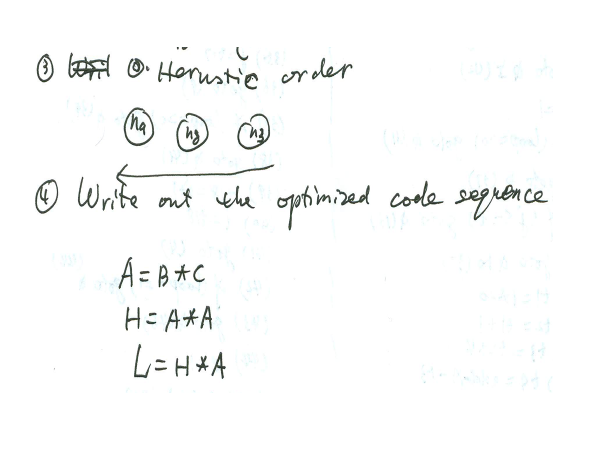 ③ ①. Herustic order
n9 n8 n3
④ Write out the optimized code seqrence
A = B * C
H = A * A
L = H * A